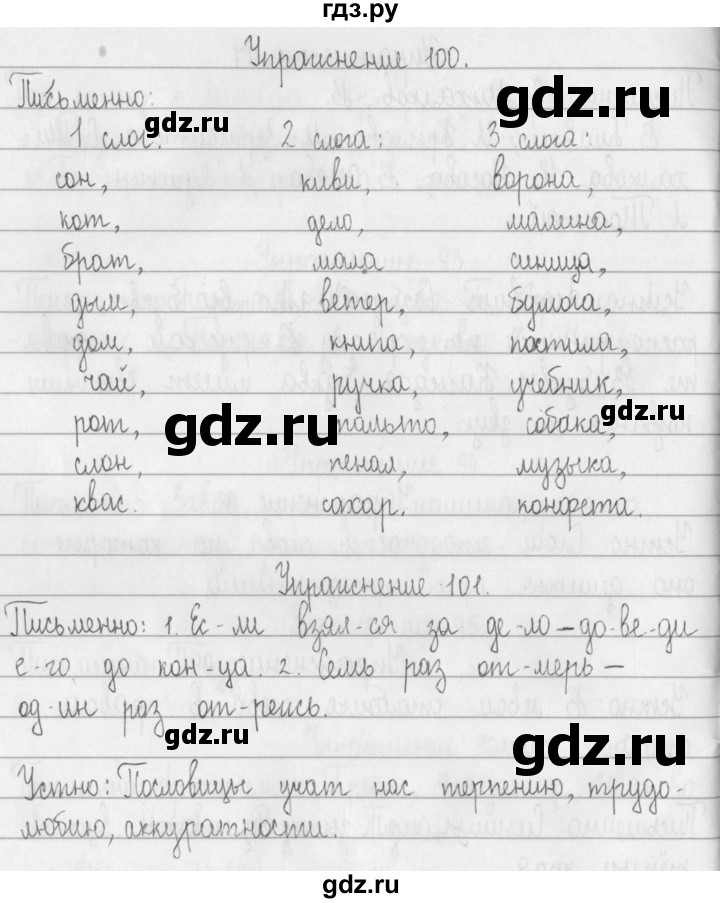 гдз.ру
Упражнение 100.
Письменно:
1 слог: 2 слога: 3 слога
сон, киви, ворона,
кот, дело, малина,
брат, маца синица,
дым, ветер, бумага,
дом, книга, пастила,
чай, ручка, учебник,
рот, пальто, собака,
слон, пенал, музыка,
квас. сахар. конфета.
Упражнение 101.
Письменно: 1. Ес-ли взял-ся за де-ло – до-ве-ди
е-го до кон-ца. 2. Семь раз от-мерь –
од-ин раз от-режь.
Устно: Пословицы учат нас терпению, трудо-
любию, аккуратности.
gdz.ru
gdz.ru
gdz.ru
gdz.ru
gdz.ru
gdz.ru
gdz.ru